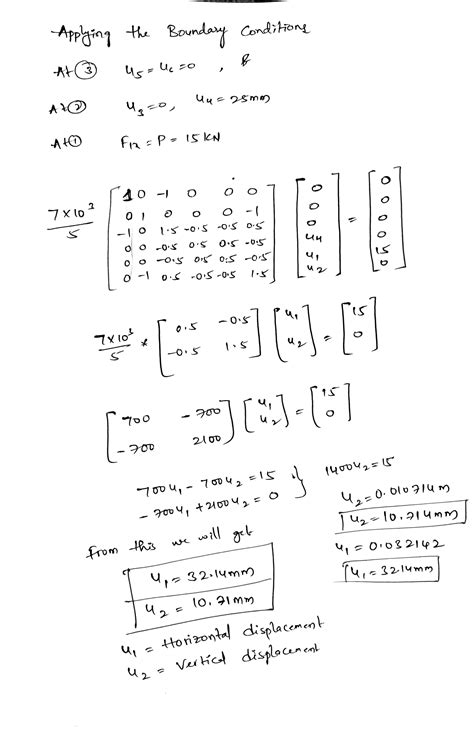 Applying the Boundary Conditions
At ③ u5 = u6 = 0 , &
At ② u3 = 0, u4 = 25mm
At ① F1x = P = 15 KN
7×10³/5 [1 0 -1 0 0 0
0 1 0 0 0 -1
-1 0 1.5 -0.5 -0.5 0.5
0 0 -0.5 0.5 0.5 -0.5
0 0 -0.5 0.5 0.5 -0.5
0 -1 0.5 -0.5 -0.5 1.5] [0 0 0 u4 u1 u2] = [0 0 0 0 15 0]
7×10³/5 * [0.5 -0.5
-0.5 1.5] [u1 u2] = [15 0]
[700 -700
-700 2100] [u1 u2] = [15 0]
700u1 - 700u2 = 15
-700u1 + 2100u2 = 0
1400u2 = 15
u2 = 0.010714 m
u2 = 10.714mm
u1 = 0.032142
u1 = 32.14mm
from this we will get
u1 = 32.14mm
u2 = 10.71mm
u1 = Horizontal displacement
u2 = Vertical displacement